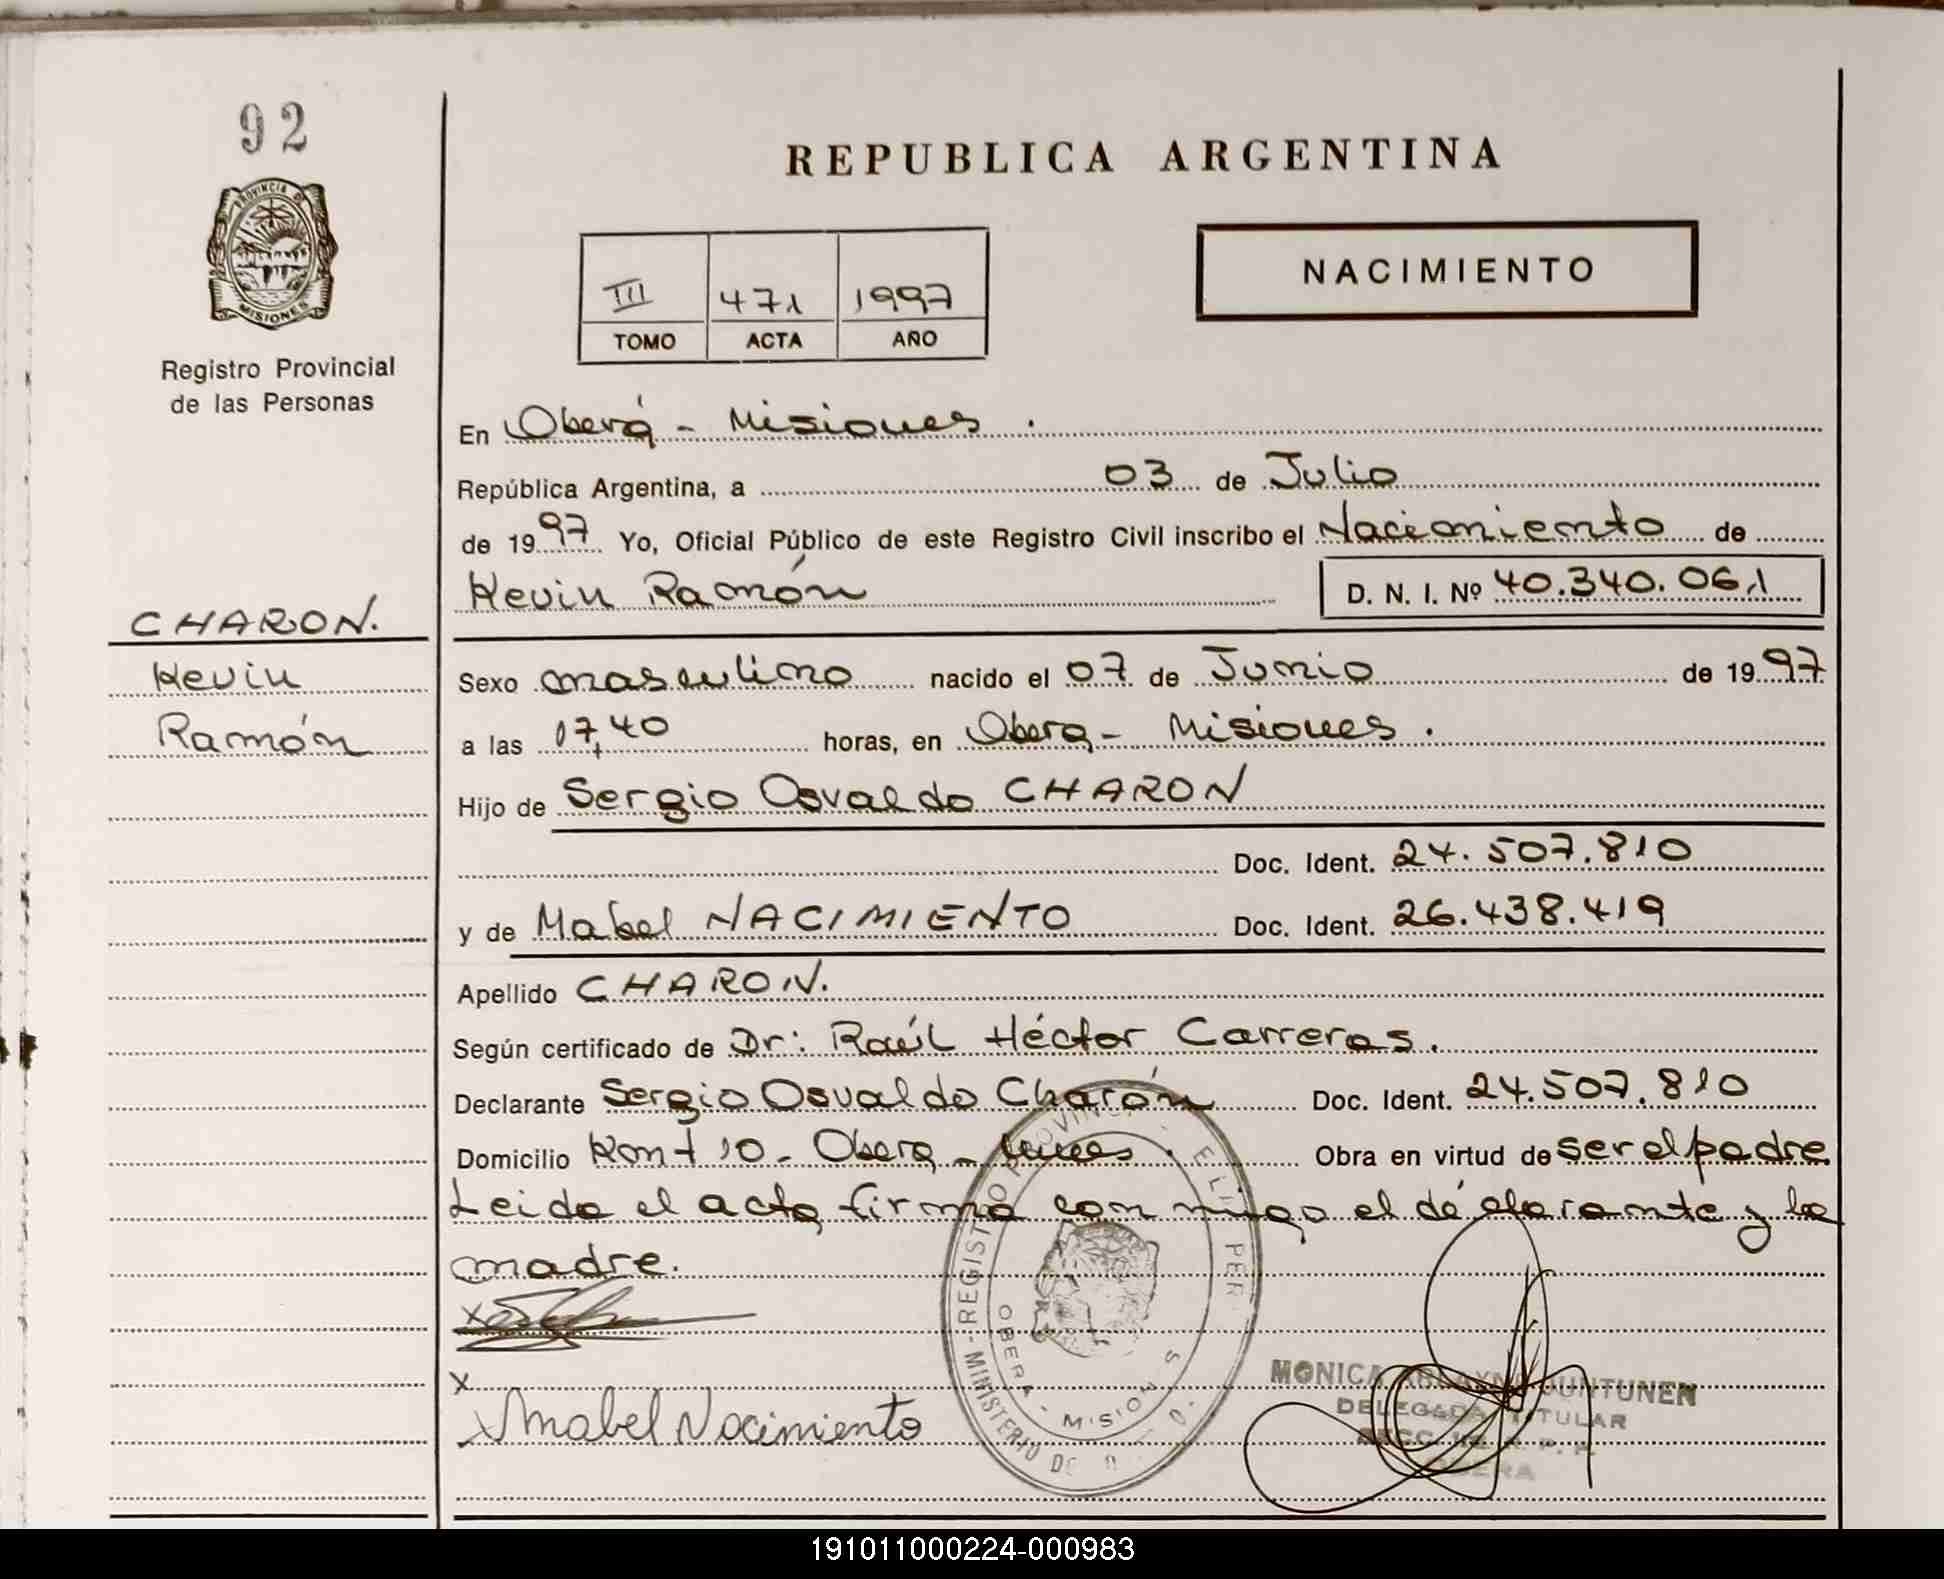 92
PROVINCIA DE
MISIONES
Registro Provincial
de las Personas
CHARON.
Kevin
Ramón
REPUBLICA ARGENTINA
III 471 1997
TOMO ACTA AÑO
NACIMIENTO
En Oberá - Misiones.
República Argentina, a 03 de Julio
de 1997 Yo, Oficial Público de este Registro Civil inscribo el Nacimiento de
Kevin Ramón D. N. I. Nº 40.340.061
Sexo masculino nacido el 07 de Junio de 1997
a las 17,40 horas, en Obera - Misiones.
Hijo de Sergio Osvaldo CHARON
Doc. Ident. 24.507.810
y de Mabel NACIMIENTO Doc. Ident. 26.438.419
Apellido CHARON.
Según certificado de Dr: Raúl Héctor Carreras.
Declarante Sergio Osvaldo Charón Doc. Ident. 24.507.810
Domicilio Km 10 - Obera - Obra en virtud de ser el padre
Leida el acta firma con migo el declarante y la
madre.
x
x
x Mabel Nacimiento
REGISTRO PROVINCIAL DE L PER
MINISTERIO DE
OBERA - MISION S
MONICA JUNTUNEN
DELEGADA TITULAR
SECC. R. P. P.
OBERA
191011000224-000983